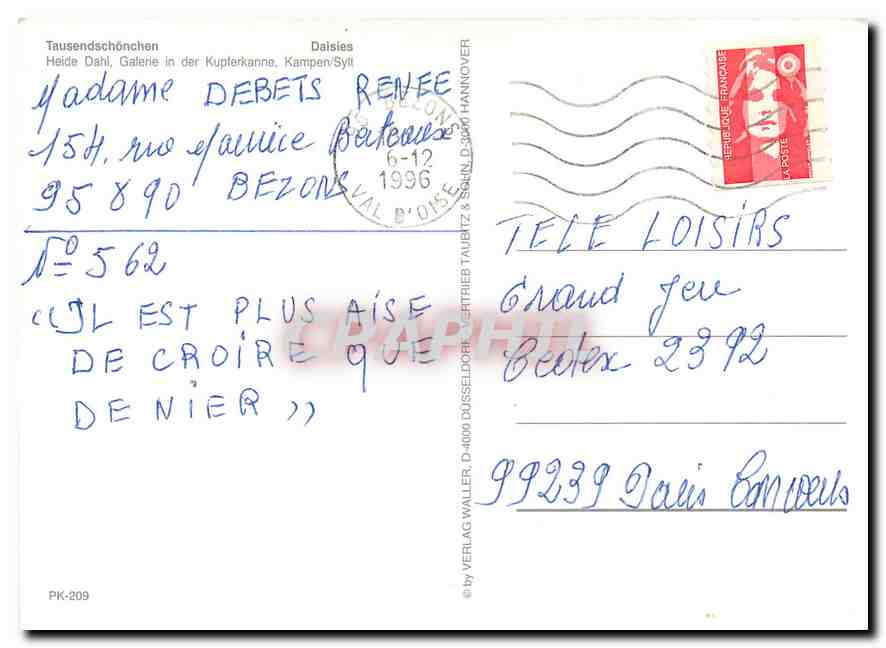 Tausendschönchen Daisies
Heide Dahl, Galerie in der Kupferkanne, Kampen/Sylt
Madame DEBETS RENEE
154, rue Maurice Berteaux
95890 BEZONS
N° 562
"IL EST PLUS AISE
DE CROIRE QUE
DE NIER"
PK-209
© by VERLAG WALLER, D-4000 DÜSSELDORF, VERTRIEB TAUBITZ & SOHN, D-3000 HANNOVER
BEZONS
6-12
1996
VAL D'OISE
REPUBLIQUE FRANÇAISE
LA POSTE
TELE LOISIRS
Grand Jeu
Cedex 2392
99239 Paris Concours
CPAPHIL